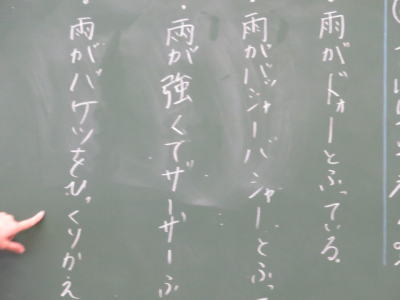 ・雨がドォーとふっている。
・雨がバシャーバシャーとふって
・雨が強くてザーザーふ
・雨がバケツをひっくりかえ